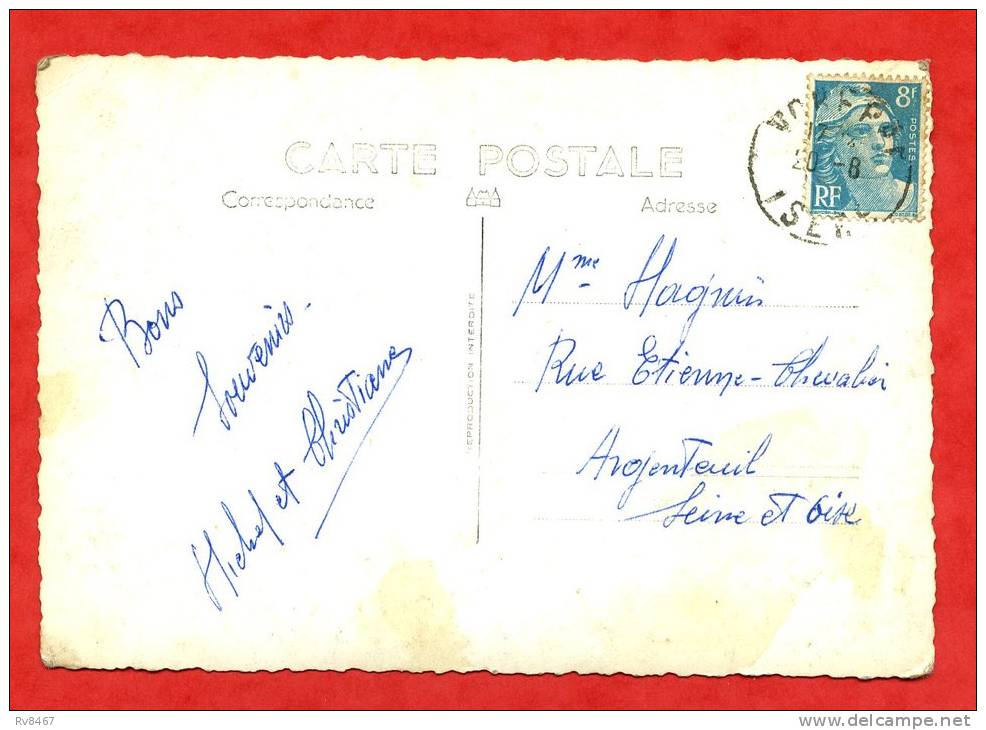 CARTE POSTALE
Correspondance
Adresse
8F
POSTES
RF
20 -8
ISERE
Bons
Souvenirs.
Michel et Christiane
REPRODUCTION INTERDITE
Mme Hagnin
Rue Etienne-Chevalier
Argenteuil
Seine et Oise
Rv8467
www.delcampe.net